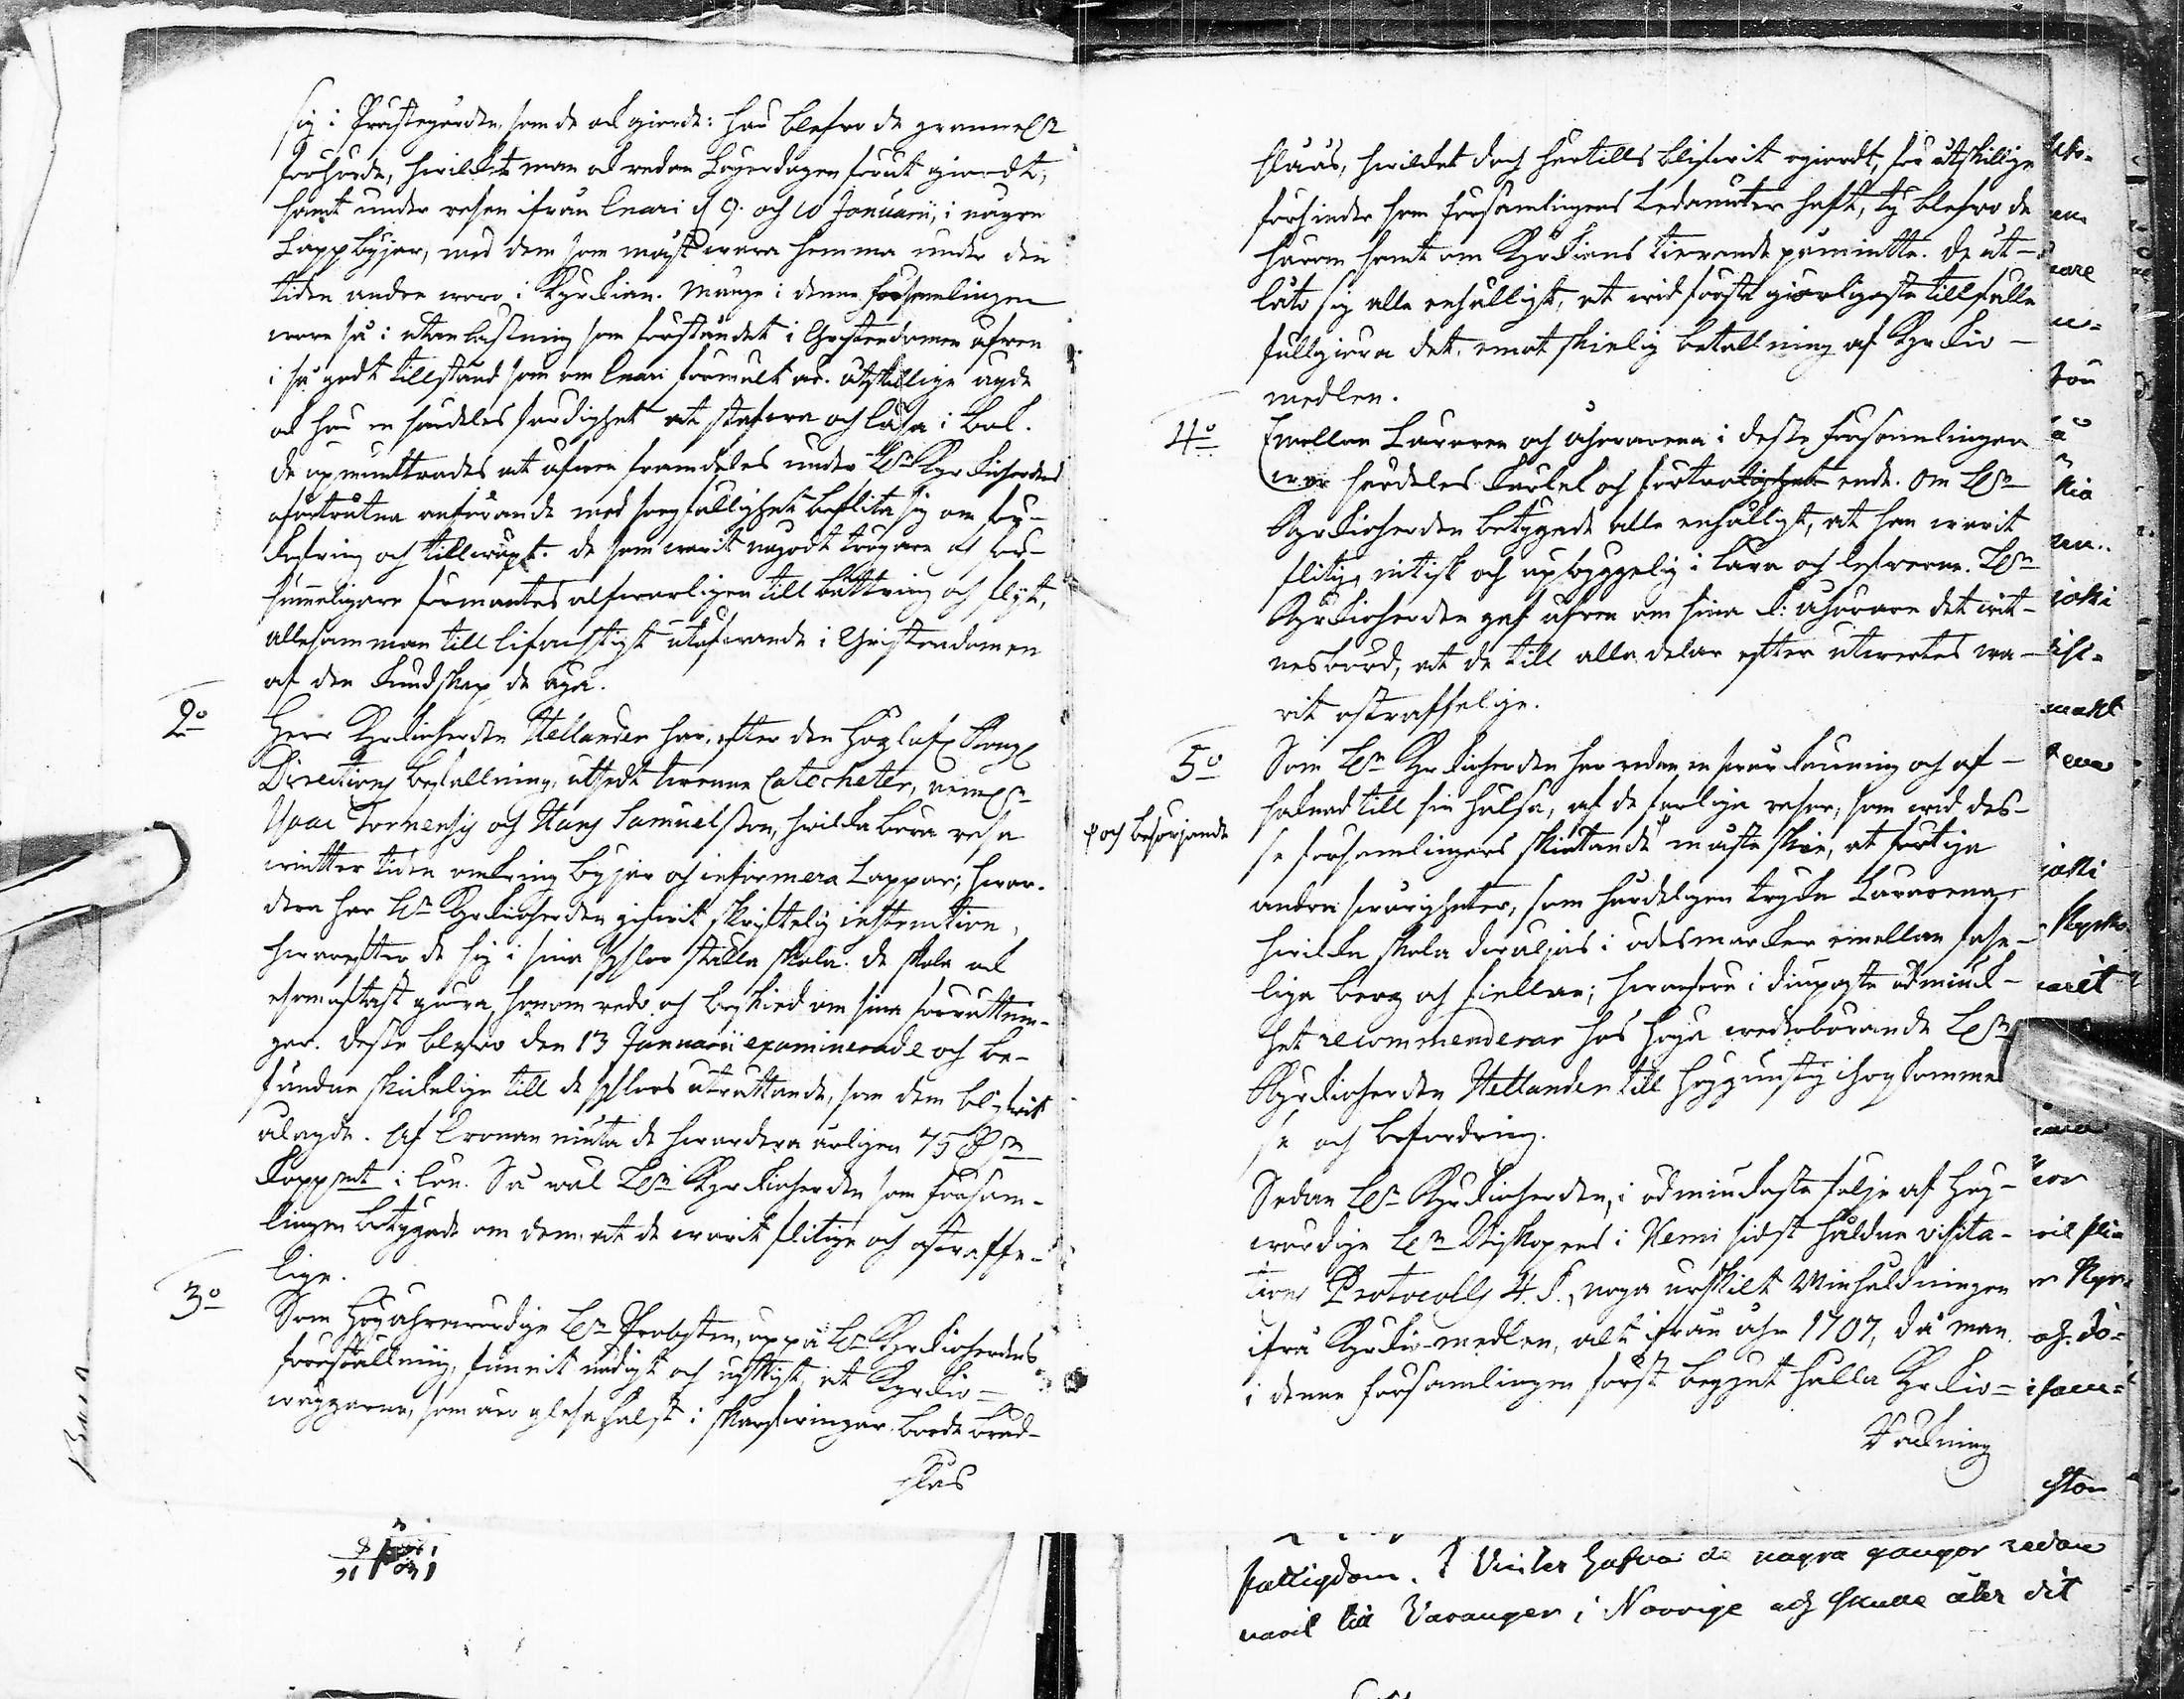 sig i Prästegården, som de ock giorde: har blefwo de
förhörde, hwilket man ock redan Lögerdagen förut giordt,
samt under resan ifrån Enari d 9. och 10 Januarii, i några
Lappbyjar, med dem som måst wara hemma under den
tiden andre woro i Kyrckian. Många i denna församlingen
woro så i utanläsning som förståndet i Christendomen äfwen
i så godt tillstånd som om Enari förmält är. Åtskillige ägde
ock här en särdeles färdighet at stafwa och läsa i Bok.
De upmuntrades at äfwen framdeles under Hr Kyrckioherdens
oförtrutna anförande med sorgfällighet beflita sig om för-
kofring och tillwäxt. De som warit något trögare och för-
summeligare förmantes alfwarligen till bättring och flijt,
allesamman till lifachtigt utöfwande i Christendomen
af den kundskap de äga.
2o Herr Kyrckioherden Hellander har, efter den Höglofl. Kongl.
Directions befallning, utsedt twenne Catecheter, neml.
Isaac Torneensis och Hans Samuelsson, hwilka böra resa
wintter tiden omkring byjar och informera Lappar; hwar-
dera har Hr Kyrckioherden gifwit skriftelig instruction,
hwarefter de sig i sina sysslor ställa skola. De skola ock
esomoftast giöra honom redo och beskied om sina förrättnin-
gar. Desse blefwo den 13 Januarii examinerade och be-
fundne skickelige till de sysslors uträttande, som dem blifwit
ålagde. Af Cronan niuta de hwardera årligen 75 Dr
Koppmt i lön. Så wäl Hr Kyrckioherden som församb-
lingen betygade om dem, at de warit flitige och ostraffe-
lige.
3o Som Högährewördige Hr Probsten, uppå Hr Kyrckioherdens
föreställning, funnit nödigt och nyttigt, at Kyrckio-
wäggarne, som äro glesa hälst i skarfningar, borde bräd-
slås
slåås, hwilcket doch härtills blifwit ogiordt, för åtskillige
förhinder som församlingens Ledamöter haft, ty blefwo de
härom samt om Kyrckians tiärande påmintte. De ut-
låto sig alla enhälligt, at wid första giörligaste tillfälle
fullgiöra det, emot skiälig betallning af Kyrckio-
medlen.
4o Emellan Läraren och åhörarena i desse församlingar
war särdeles kärlek och förtrolighet ende. Om Hr
Kyrckioherden betygade alla enhälligt, at han warit
flitig, nitisk och upbyggelig i lära och lefwerne. Hr
Kyrckioherden gaf äfwen om sina k: åhörare det wit-
nesbörd, at de till alla delar efter utwertes wa-
rit ostraffelige.
5o Som Hr Kyrckioherden har redan en swår känning och af-
saknad till sin hälsa, af de farliga resor, som wid des-
se församlingars skiötande måste skie, at förtiga
och besörjande
andra swårigheter, som hårdeligen trycka Lärarena,
hwilka skola dwäljas i ödesmarker emellan fase-
liga berg och fiellar; hwarföre i diupaste ödmiuk-
het recommenderar hos höga wederbörande Hr
Kyrckioherden Hellander till höggunstig ihogkommel
se och befordring.
Sedan Hr Kyrckioherden, i ödmiukaste följe af Hög-
wördige Hr Biskopens i Kemi sidst håldne visita-
tions Protocolls 4. §., noga urskilt Winhåldningen
ifrå Kyrckio-medlen, alt ifrån åhr 1707, då man
i denna församlingen först begynt hålla Kyrckio-
Räckning
fattigdom. I Vinter hafva de nagra gangor redan
varit till Varanger i Norrige och skulle åter dit